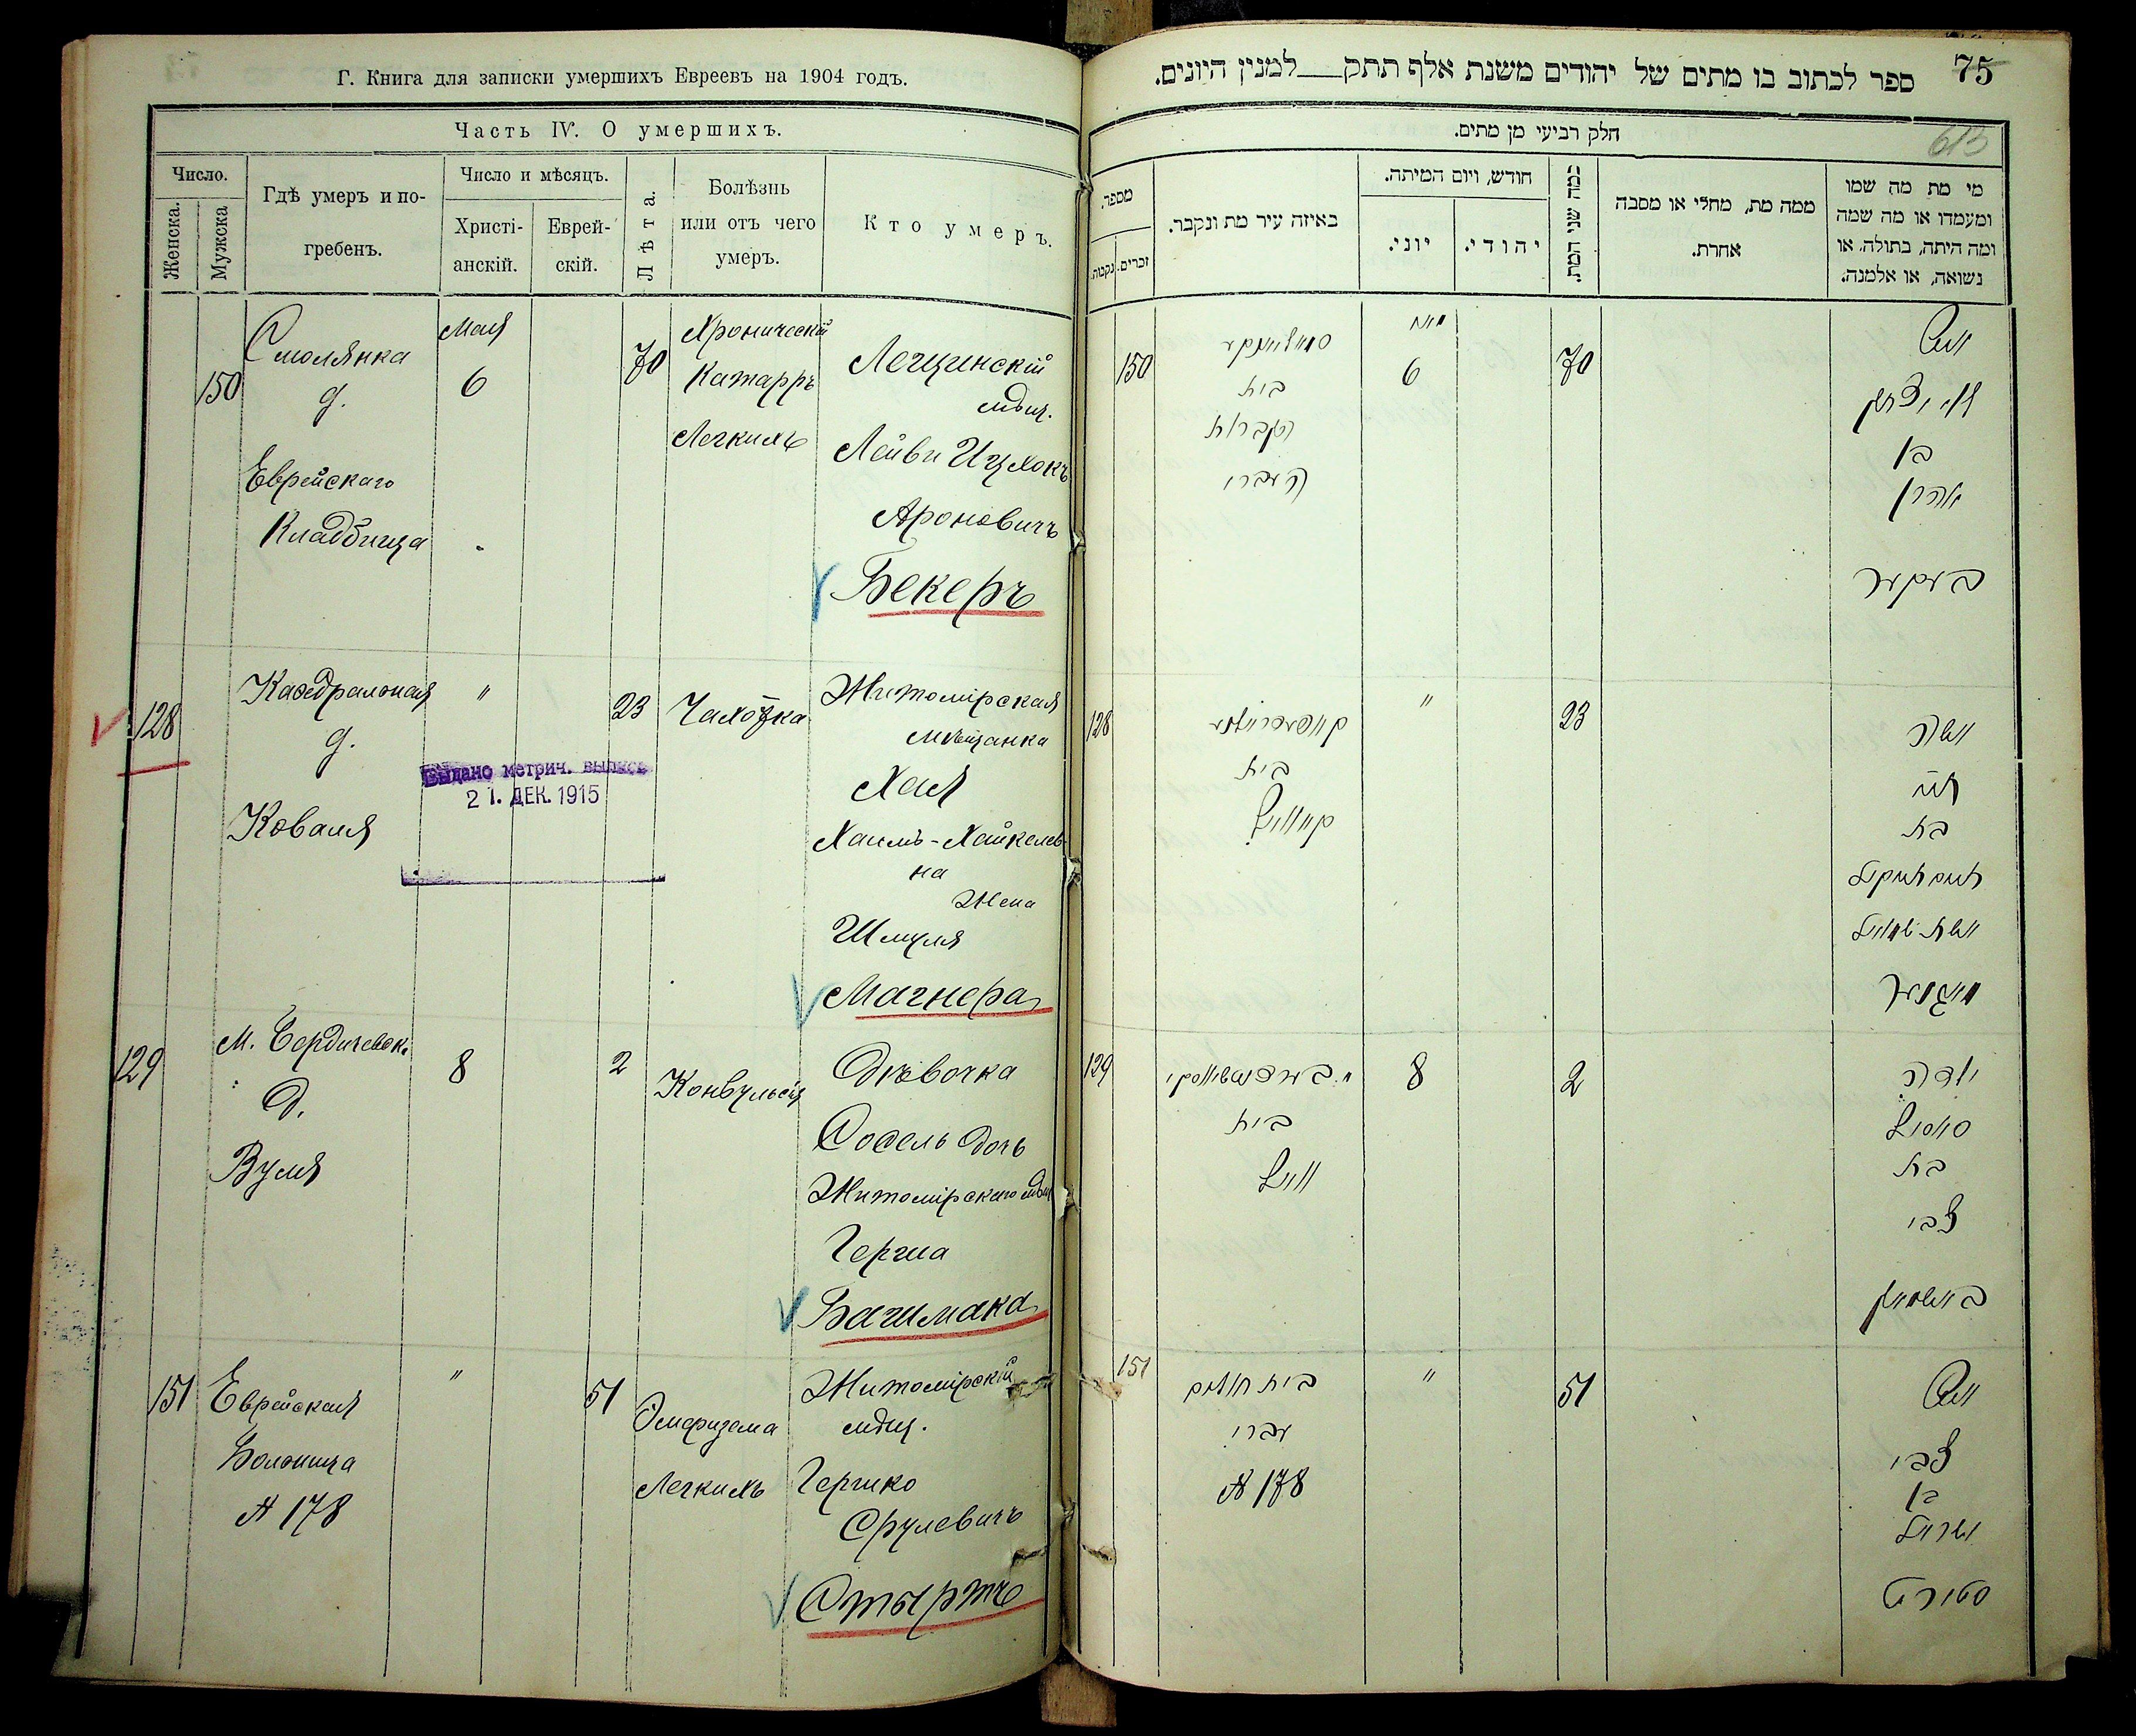 Г. Книга для записки умершихъ Евреевъ на 1904 годъ.
Часть IV. О умершихъ.
Число.
Женска.
Мужска
Гдѣ умеръ и по-
гребенъ.
Число и мѣсяцъ.
Христі-
анскій.
Еврей-
скій.
Лѣта.
Болѣзнь
или отъ чего
умеръ.
Кто умеръ.
150
Смолянка
д.
Еврейскаго
Кладбища
Мая
6
70
Хроническій
Катарръ
Легкихъ
Лещинскій
мѣщ.
Лейви Ицхокъ
Ароновичъ
Бекеръ
128
Каѳедральная
д.
Коваля
"
Выдано метрич. выпись
21. ДЕК. 1915
23
Чахотка
Житомірская
мѣщанка
Хая
Хаимъ-Хайкелев-
на
Жена
Шмуля
Магнера
129
М. Бердичевск.
д.
Вуля
8
2
Конвульсія
Дѣвочка
Сосель дочь
Житомірскаго мѣщ
Герша
Башмака
151
Еврейская
Больница
№ 178
"
51
Эмфизема
Легкихъ
Житомірскій
мѣщ.
Гершко
Срулевичъ
Стыртъ
75
ספר לכתוב בו מתים של יהודים משנת אלף תתק למנין היונים.
613
חלק רביעי מן מתים.
מספר.
נקבות.
זכרים.
באיזה עיר מת ונקבר.
חודש, ויום המיתה.
יוני.
יהודי.
כמה שני המת.
ממה מת, מחלי או מסבה
אחרת.
מי מת מה שמו
ומעמדו או מה שמה
ומה היתה, בתולה, או
נשואה, או אלמנה.
150
סמאליאנקע
בית
הקברות
העברי
מאי
6
70
איש
לוי יצחק
בן
אהרן
בעקער
128
קאפעדראלנע
בית
קאוואל
"
23
אשה
חיה
בת
חיים חייקיל
אשת שמואל
מאגנער
129
בית
וואל
8
2
ילדה
סאסיל
בת
צבי
באשמאק
151
בית חולים
עברי
№ 178
"
51
איש
צבי
בן
ישראל
סטירט